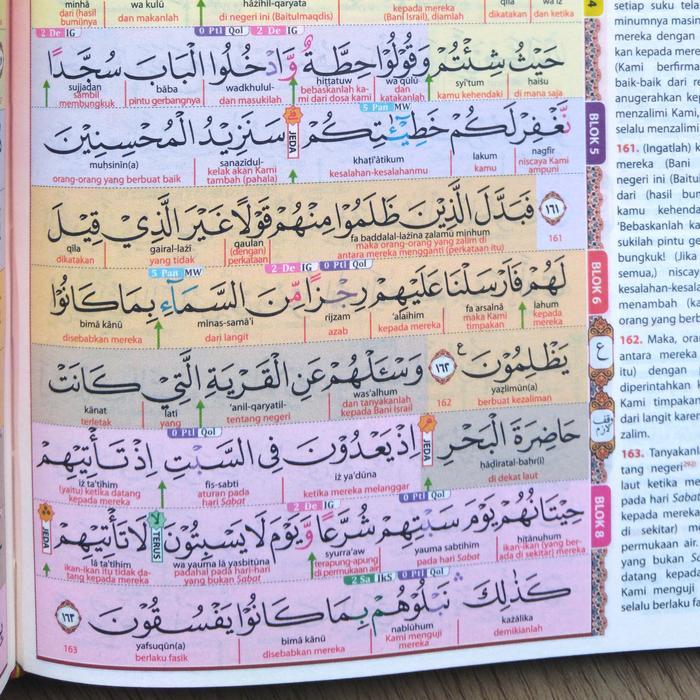 minhā wa kulū hāżihil-qaryata wa iż
dari (hasil buminya dan makanlah di negeri ini (Baitulmaqdis) kepada mereka (Bani Israil), diamlah dikatakan dan ketika
2 De IG 0 Ptl Qol 2 De IG
حَيْثُ شِئْتُمْ وَقُولُوا حِطَّةٌ وَّادْخُلُوا الْبَابَ سُجَّدًا
sujjadan bāba wadkhulul- hittatuw wa qūlū syi'tum haiṡu
sambil membungkuk pintu gerbangnya dan masukilah bebaskanlah kami dari dosa kami dan katakanlah kamu kehendaki di mana saja
5 Pan MW
نَّغْفِرْ لَكُمْ خَطِيْٓـٰٔتِكُمْ سَنَزِيدُ الْمُحْسِنِينَ
JEDA
muḥsinīn(a) sanazīdul- khaṭī'ātikum lakum nagfir
orang-orang yang berbuat baik kelak akan Kami tambah (pahala) kesalahan-kesalahanmu kamu niscaya Kami ampuni
١٦١ فَبَدَّلَ الَّذِينَ ظَلَمُوا مِنْهُمْ قَوْلًا غَيْرَ الَّذِي قِيلَ
qīla gairal-lażī qaulan fa baddalal-lażīna ẓalamū minhum 161
dikatakan yang tidak (dengan) perkataan maka orang-orang yang zalim di antara mereka mengganti (perkataan itu)
5 Pan MW 2 De IG 0 Ptl Qol
لَهُمْ فَأَرْسَلْنَا عَلَيْهِمْ رِجْزًا مِّنَ السَّمَاءِ بِمَا كَانُوا
bimā kānū minas-samā'i rijzam 'alaihim fa arsalnā lahum
disebabkan mereka dari langit azab kepada mereka maka Kami timpakan kepada mereka
يَظْلِمُونَ ع ١٦٢ وَسْـَٔلْهُمْ عَنِ الْقَرْيَةِ الَّتِي كَانَتْ
kānat latī 'anil-qaryatil- was'alhum 162 yaẓlimūn(a)
terletak yang tentang negeri dan tanyakanlah kepada Bani Israil berbuat kezaliman
0 Ptl Qol
حَاضِرَةَ الْبَحْرِ إِذْ يَعْدُونَ فِي السَّبْتِ إِذْ تَأْتِيهِمْ
JEDA
iż ta'tīhim fis-sabti iż ya'dūna ḥāḍiratal-baḥr(i)
(yaitu) ketika datang kepada mereka aturan pada hari Sabat ketika mereka melanggar di dekat laut
2 De IG 0 Ptl Qol
حِيتَانُهُمْ يَوْمَ سَبْتِهِمْ شُرَّعًا وَّيَوْمَ لَا يَسْبِتُونَ لَا تَأْتِيهِمْ
TERUS JEDA
lā ta'tīhim wa yauma lā yasbitūna syurra'aw yauma sabtihim ḥītānuhum
ikan-ikan itu tidak datang kepada mereka padahal pada hari-hari yang bukan Sabat terapung-apung di permukaan air pada hari Sabat ikan-ikan (yang berada di sekitar) mereka
2 Sa IkS 0 Ptl Qol
كَذَٰلِكَ نَبْلُوهُمْ بِمَا كَانُوا يَفْسُقُونَ ١٦٣
163 yafsuqūn(a) bimā kānū nablūhum każālika
berlaku fasik disebabkan mereka Kami menguji mereka demikianlah
BLOK 5
BLOK 6
ع
وقف لازم
BLOK 8
setiap suku tela
minumnya masin
mereka dengan
kan kepada mere
(Kami berfirma
baik-baik dari re
anugerahkan kep
menzalimi Kami,
selalu menzalimi
161. (Ingatlah) k
mereka (Bani
negeri ini (Baitul
dari (hasil bum
kamu kehendaki
'Bebaskanlah ka
sukilah pintu ge
bungkuk! (Jika
semua,) niscay
kesalahan-kesala
menambah (ka
orang yang berb
162. Maka, ora
antara mereka
itu) dengan
diperintahkan
Kami timpakan
dari langit karer
zalim.
163. Tanyakanl
tang negeri
laut ketika me
pada hari Sabat
kepada mereka
di sekitar) m
permukaan air.
yang bukan Sa
datang kepada
Kami menguji
selalu berlaku f